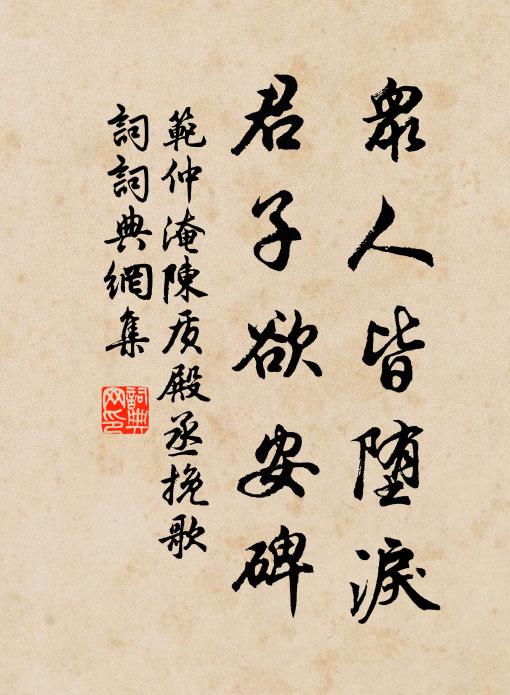 眾人皆堕淚
君子欲安碑
範仲淹陳质殿丞挽歌
詞詞典網集
詞典
网印